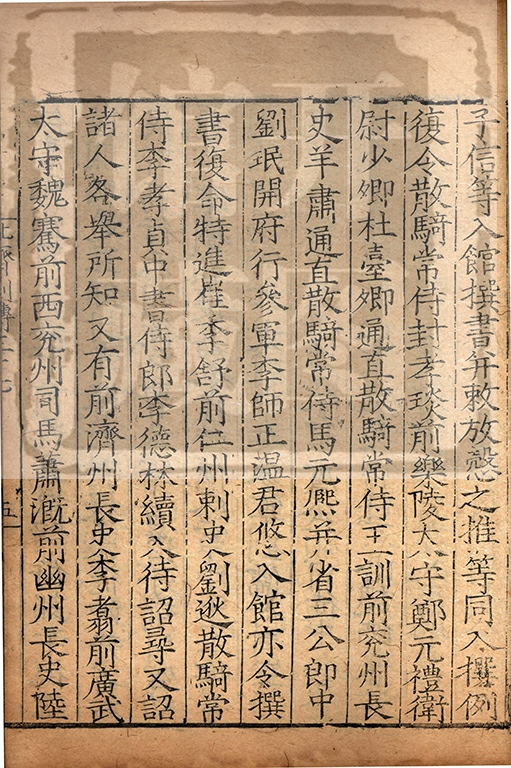 子信等入館撰書并敕放慤之推等同入撰例
復令散騎常侍封孝琰前樂陵太守鄭元禮衛
尉少卿杜臺卿通直散騎常侍王訓前兖州長
史羊肅通直散騎常侍馬元熈并省三公郎中
劉珉開府行參軍李師正温君悠入館亦令撰
書復命特進崔季舒前仁州刺史劉逖散騎常
侍李孝貞中書侍郎李德林續入待詔尋又詔
諸人各舉所知又有前濟州長史李翥前廣武
太守魏騫前西兖州司馬蕭溉前幽州長史陸
北齊列傳三十七
五